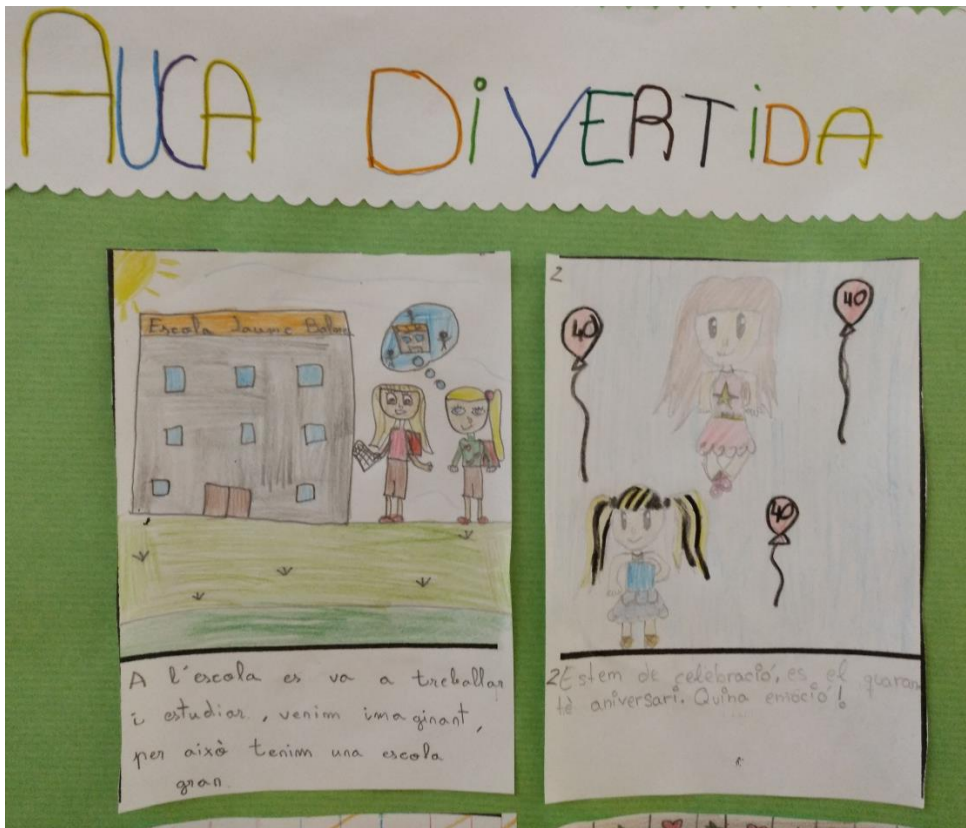 AUCA DiVERTiDA
Escola Jaume Balmes
40
40
40
2
A l'escola es va a treballar
i estudiar, venim imaginant,
per això tenim una escola
gran.
2 Estem de celebració, es el quaran
tè aniversari. Quina emoció!